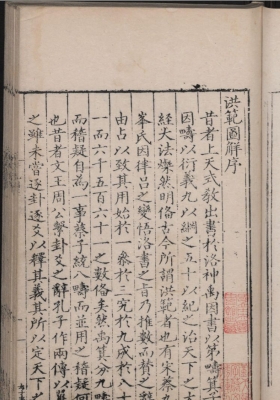 洪範圖解序
昔者上天式教出書於洛神禹因書以第疇箕子
因疇以衍義九以綱之五十以紀之治天下之大
經大法燦然明備古今所謂洪範者也有宋蔡九
峯氏因律呂之變悟洛書之旨乃推數而贊之
由占以致其用始於一叅於三究於九成於八十
一而六千五百六十一之數備矣然禹箕分九疇
而稽疑自為一事蔡子統八疇而並用之稽疑何
也昔者文王周公繫卦爻之辭孔子作兩傳以
之雖未嘗逐卦逐爻以釋其義其所以定天下之